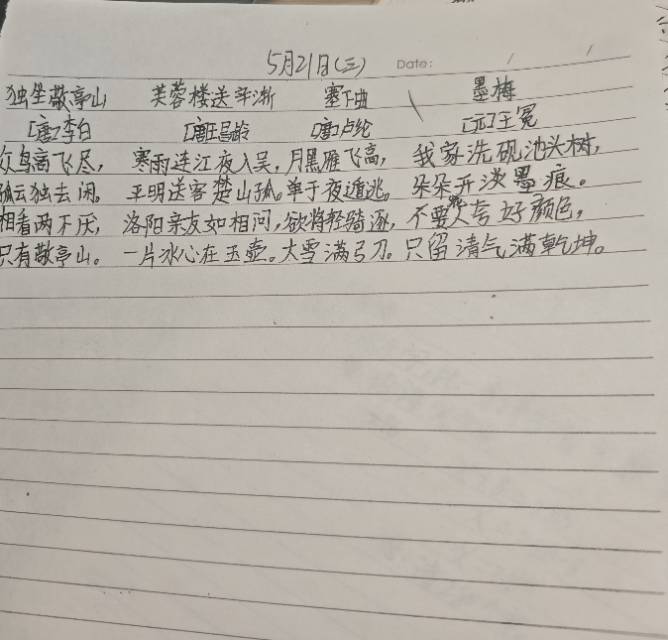 5月21日(三) Date: / /
独坐敬亭山 芙蓉楼送辛渐 塞下曲 \ 墨梅
[唐]李白 [唐]王昌龄 [唐]卢纶 [元]王冕
众鸟高飞尽， 寒雨连江夜入吴，月黑雁飞高， 我家洗砚池头树，
孤云独去闲。 平明送客楚山孤。单于夜遁逃。 朵朵开淡墨痕。
相看两不厌， 洛阳亲友如相问，欲将轻骑逐， 不要人夸好颜色，
只有敬亭山。 一片冰心在玉壶。大雪满弓刀。只留清气满乾坤。